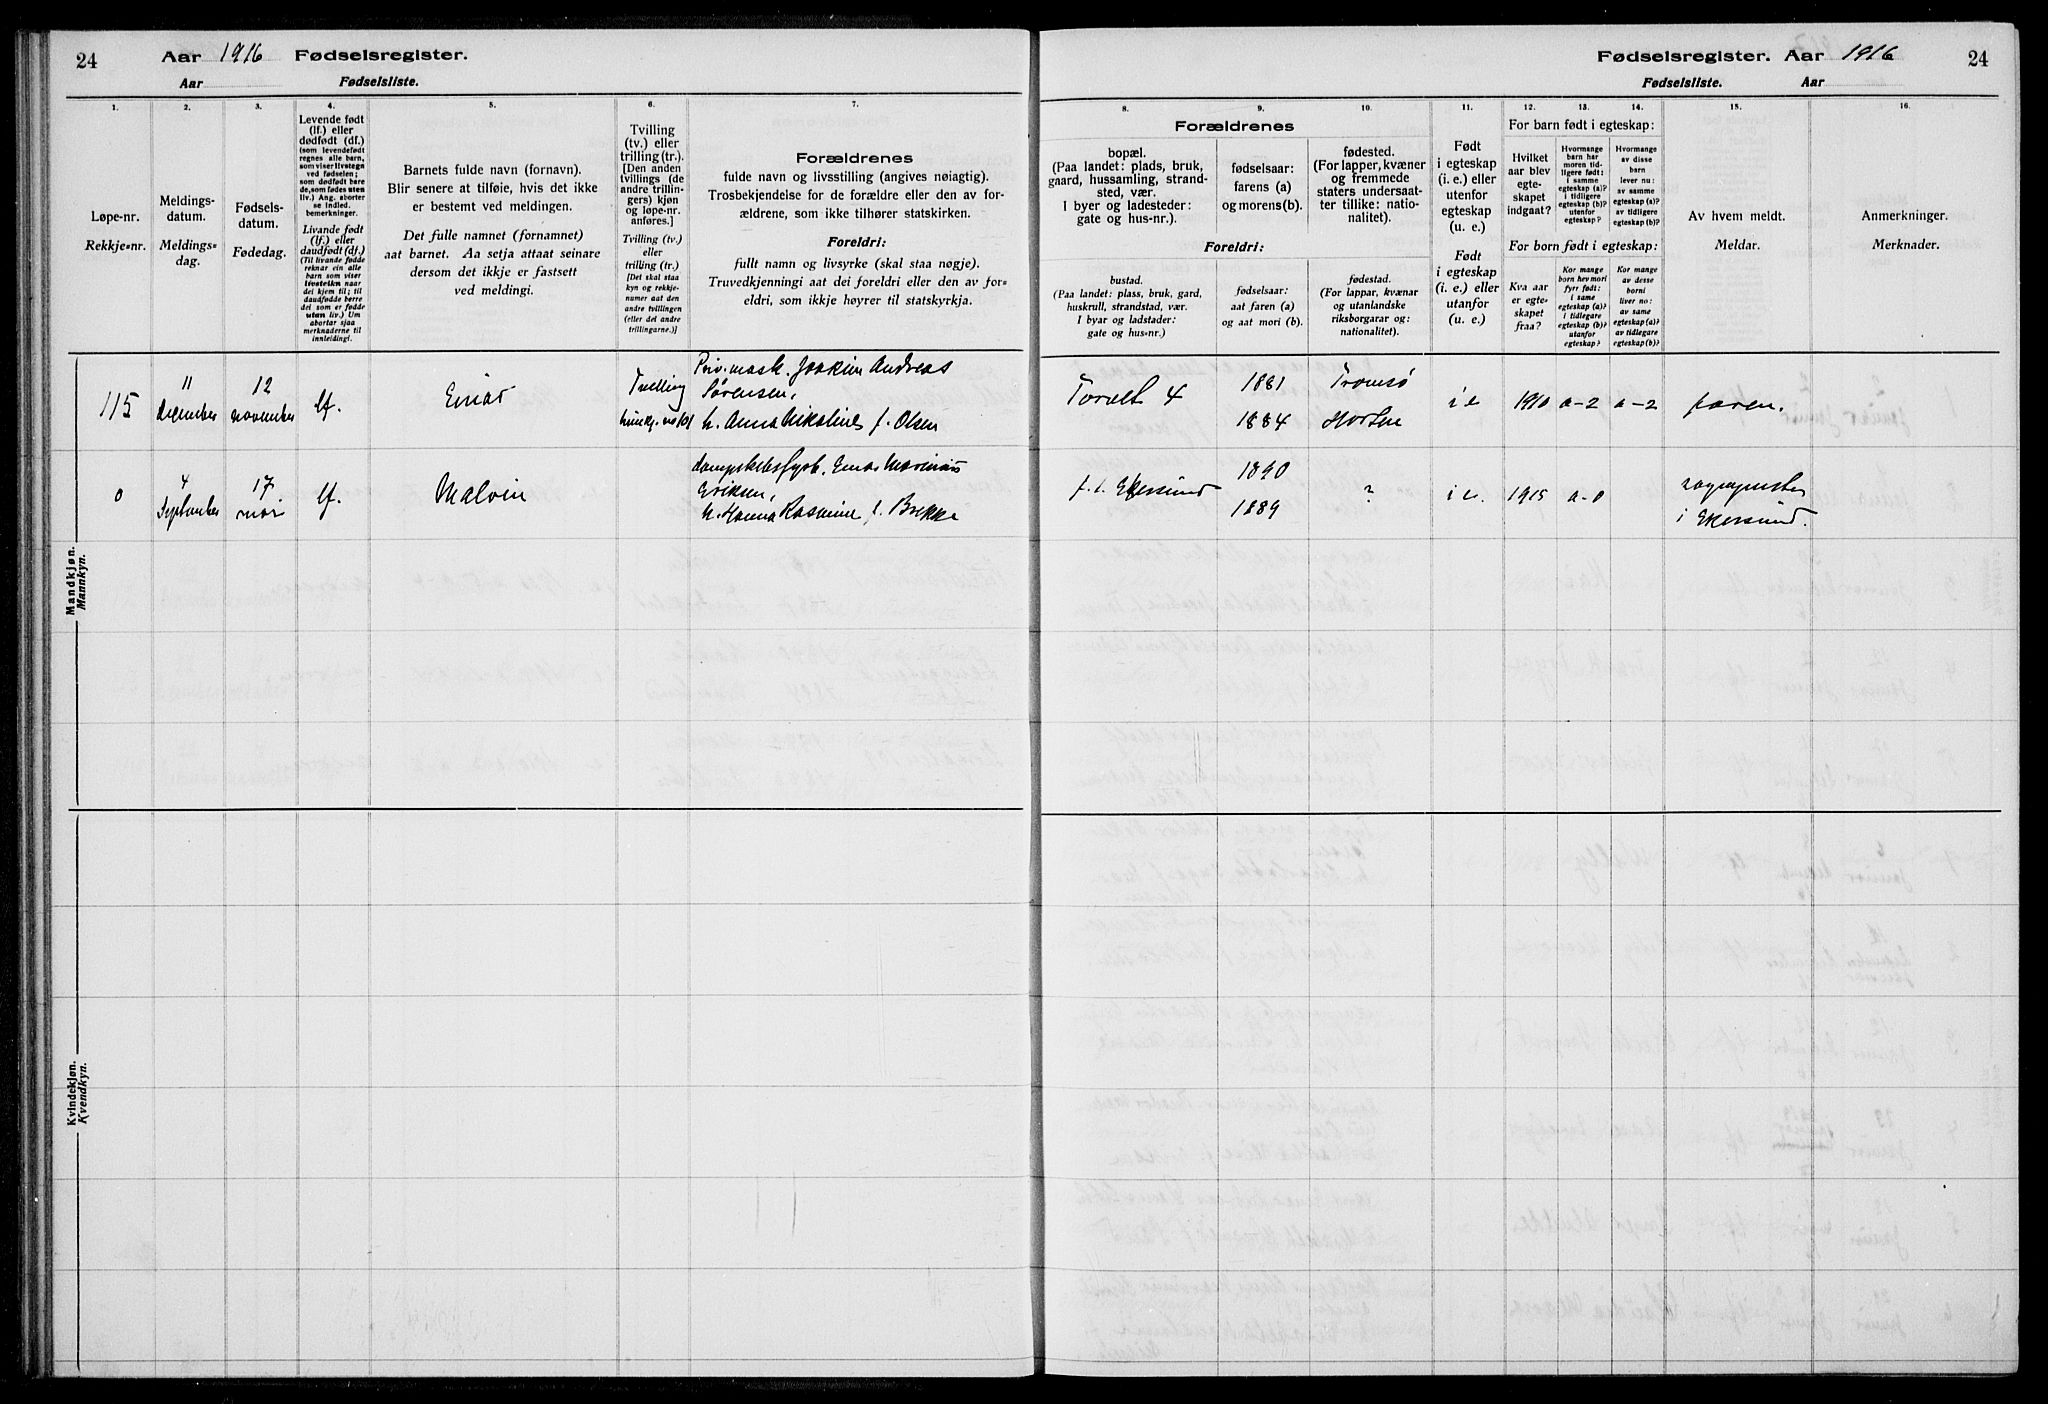 24
Aar 1916 Fødselsregister.
Aar Fødselsliste.
1.
2.
3.
4.
5.
6.
7.
Løpe-nr.
Rekkje-nr.
Meldings-
datum.
Meldings-
dag.
Fødsels-
datum.
Fødedag.
Levende født
(lf.) eller
dødfødt (df.)
(som levendefødt
regnes alle barn,
som viser livstegn
ved fødselen;
som dødfødt ba-
re de, som fødes uten
liv.) Ang. aborter
se indled.
bemerkninger.
Livande født
(lf.) eller
daudfødt (df.)
(Til livande fødde
reknar ein alle
barn som viser
livsteikn naar
dei kjem til; til
daudfødde berre
dei som er fødde
utan liv.) Um
abortar sjaa
merknaderne til
innleidingi.
Barnets fulde navn (fornavn).
Blir senere at tilføie, hvis det ikke
er bestemt ved meldingen.
Det fulle namnet (fornamnet)
aat barnet. Aa setja attaat seinare
dersom det ikkje er fastsett
ved meldingi.
Tvilling
(tv.) eller
trilling (tr.).
[Den anden
tvillings (de
andre trillin-
gers) kjøn
og løpe-nr.
anføres.]
Tvilling (tv.)
eller
trilling (tr.)
[Det skal staa
kyn og rekkje-
numer aat den
andre tvillingen
(eller dei andre
trillingarne.)]
Forældrenes
fulde navn og livsstilling (angives nøiagtig).
Trosbekjendelse for de forældre eller den av for-
ældrene, som ikke tilhører statskirken.
Foreldri:
fullt namn og livsyrke (skal staa nøgje).
Truvedkjenningi aat dei foreldri eller den av for-
eldri, som ikkje høyrer til statskyrkja.
Mandkjøn.
Mannkyn.
115
11
December
12
November
lf.
Einar
Tvelling
kvinkj. no 101
Priv. mask. Joakim Andreas
Sørensen,
h. Anna Nikoline f. Olsen
0
4
September
17
mai
lf.
Malvin
Eriksen,
h. Hanna Rasmine f. Brekke
Kvindekjøn.
Kvendkyn.
Fødselsregister. Aar 1916
24
Fødselsliste. Aar
8.
9.
10.
11.
12.
13.
14.
15.
16.
Forældrenes
bopæl.
(Paa landet: plads, bruk,
gaard, hussamling, strand-
sted, vær.
I byer og ladesteder:
gate og hus-nr.).
fødselsaar:
farens (a)
og morens (b).
fødested.
(For lapper, kvæner
og fremmede
staters undersaat-
ter tillike: natio-
nalitet).
Foreldri:
bustad.
(Paa landet: plass, bruk, gard,
huskrull, strandstad, vær.
I byar og ladstader:
gate og hus-nr.).
fødselsaar:
aat faren (a)
og aat mori (b).
fødestad.
(For lappar, kvænar
og utanlandske
riksborgarar og:
nationalitet).
Født
i egteskap
(i. e.) eller
utenfor
egteskap
(u. e.)
Født
i egteskap
(i. e.) eller
utanfor
(u. e.)
For barn født i egteskap:
Hvilket
aar blev
egte-
skapet
indgaat?
Hvormange
barn har
moren tid-
ligere født:
i samme
egteskap (a)?
i tidligere
egteskap (b)?
utenfor
egteskap?
Hvormange
av disse
barn
lever nu:
av samme
egteskap (a)?
av tidligere
egteskap (b)?
For born født i egteskap:
Kva aar
er egte-
skapet
fraa?
Kor mange
born hev mori
fyrr født:
i same
egteskap (a)?
i tidlegare
egteskap (b)?
utanfor
egteskap?
Kor mange
av desse
borni
liver no:
av same
egteskap (a)?
av tidlegare
egteskap (b)?
Av hvem meldt.
Meldar.
Anmerkninger.
Merknader.
Torvet 4
1881
1884
Tromsø
Horten
i e
1910
a-2
a-2
faren.
f. t. Ekersund
1890
1889
?
i e.
1915
a-0
sogneprsten
i Ekersund.